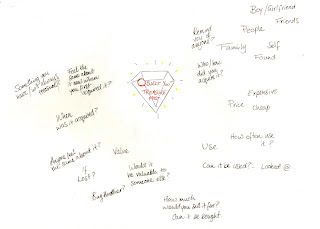 Boy/Girlfriend
Friends
People
Remind
you of
anyone?
Family
Self
Found
Who/how
did you
acquire it?
Something you
have/will always
treasure?
Feel the
same about
it now/when
you first
acquired it?
Object =
Treasure
Map
When
was it acquired?
Expensive
Price
cheap
How often use
it?
Use
Can it be used? - Looked @
Anyone but
not same about it?
Value
If
Lost?
Would it
be valuable to
someone else?
Buy Another?
How much
would you sell it for?
Can't be bought